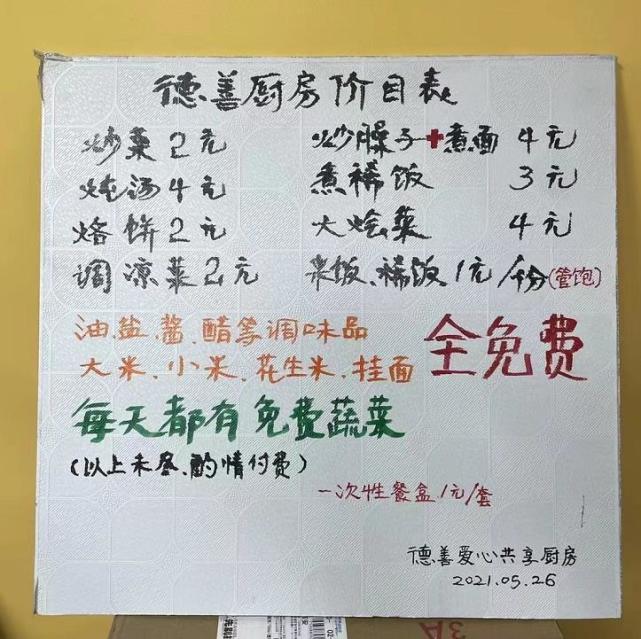 德善厨房价目表
炒菜2元 炒臊子+煮面 4元
炖汤4元 煮稀饭 3元
烙饼2元 大烩菜 4元
调凉菜2元 米饭、稀饭1元/份(管饱)
油、盐、酱、醋等调味品
大米、小米、花生米、挂面
全免费
每天都有免费蔬菜
(以上未尽、酌情付费)
一次性餐盒1元/套
德善爱心共享厨房
2021.05.26
3A